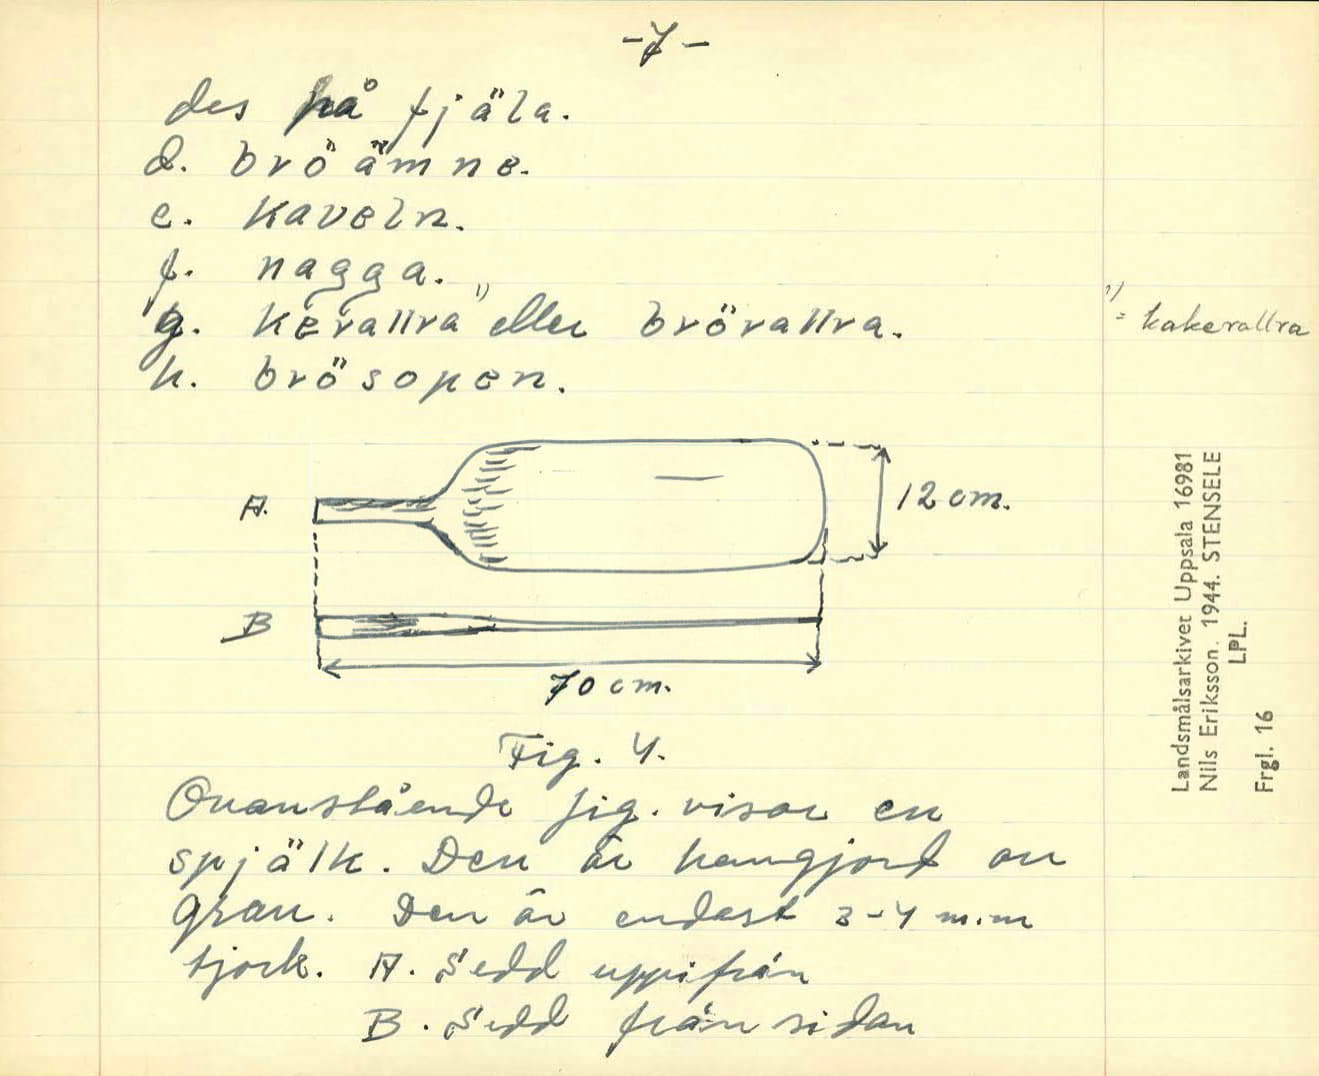 -7-
des på fjäla.
d. bröämne.
e. Kaveln.
f. nagga.
g. Kerallra ¹⁾ eller brörallra.
¹⁾ = kakerallra
h. brösopen.
A.
12 cm.
B
70 cm.
Fig. 4.
Ovanstående fig. visar en
spjälk. Den är hemgjord av
gran. Den är endast 3-4 m.m
tjock. A. Sedd uppifrån
B. Sedd från sidan
Landsmålsarkivet Uppsala 16981
Nils Eriksson. 1944. STENSELE
LPL.
Frgl. 16